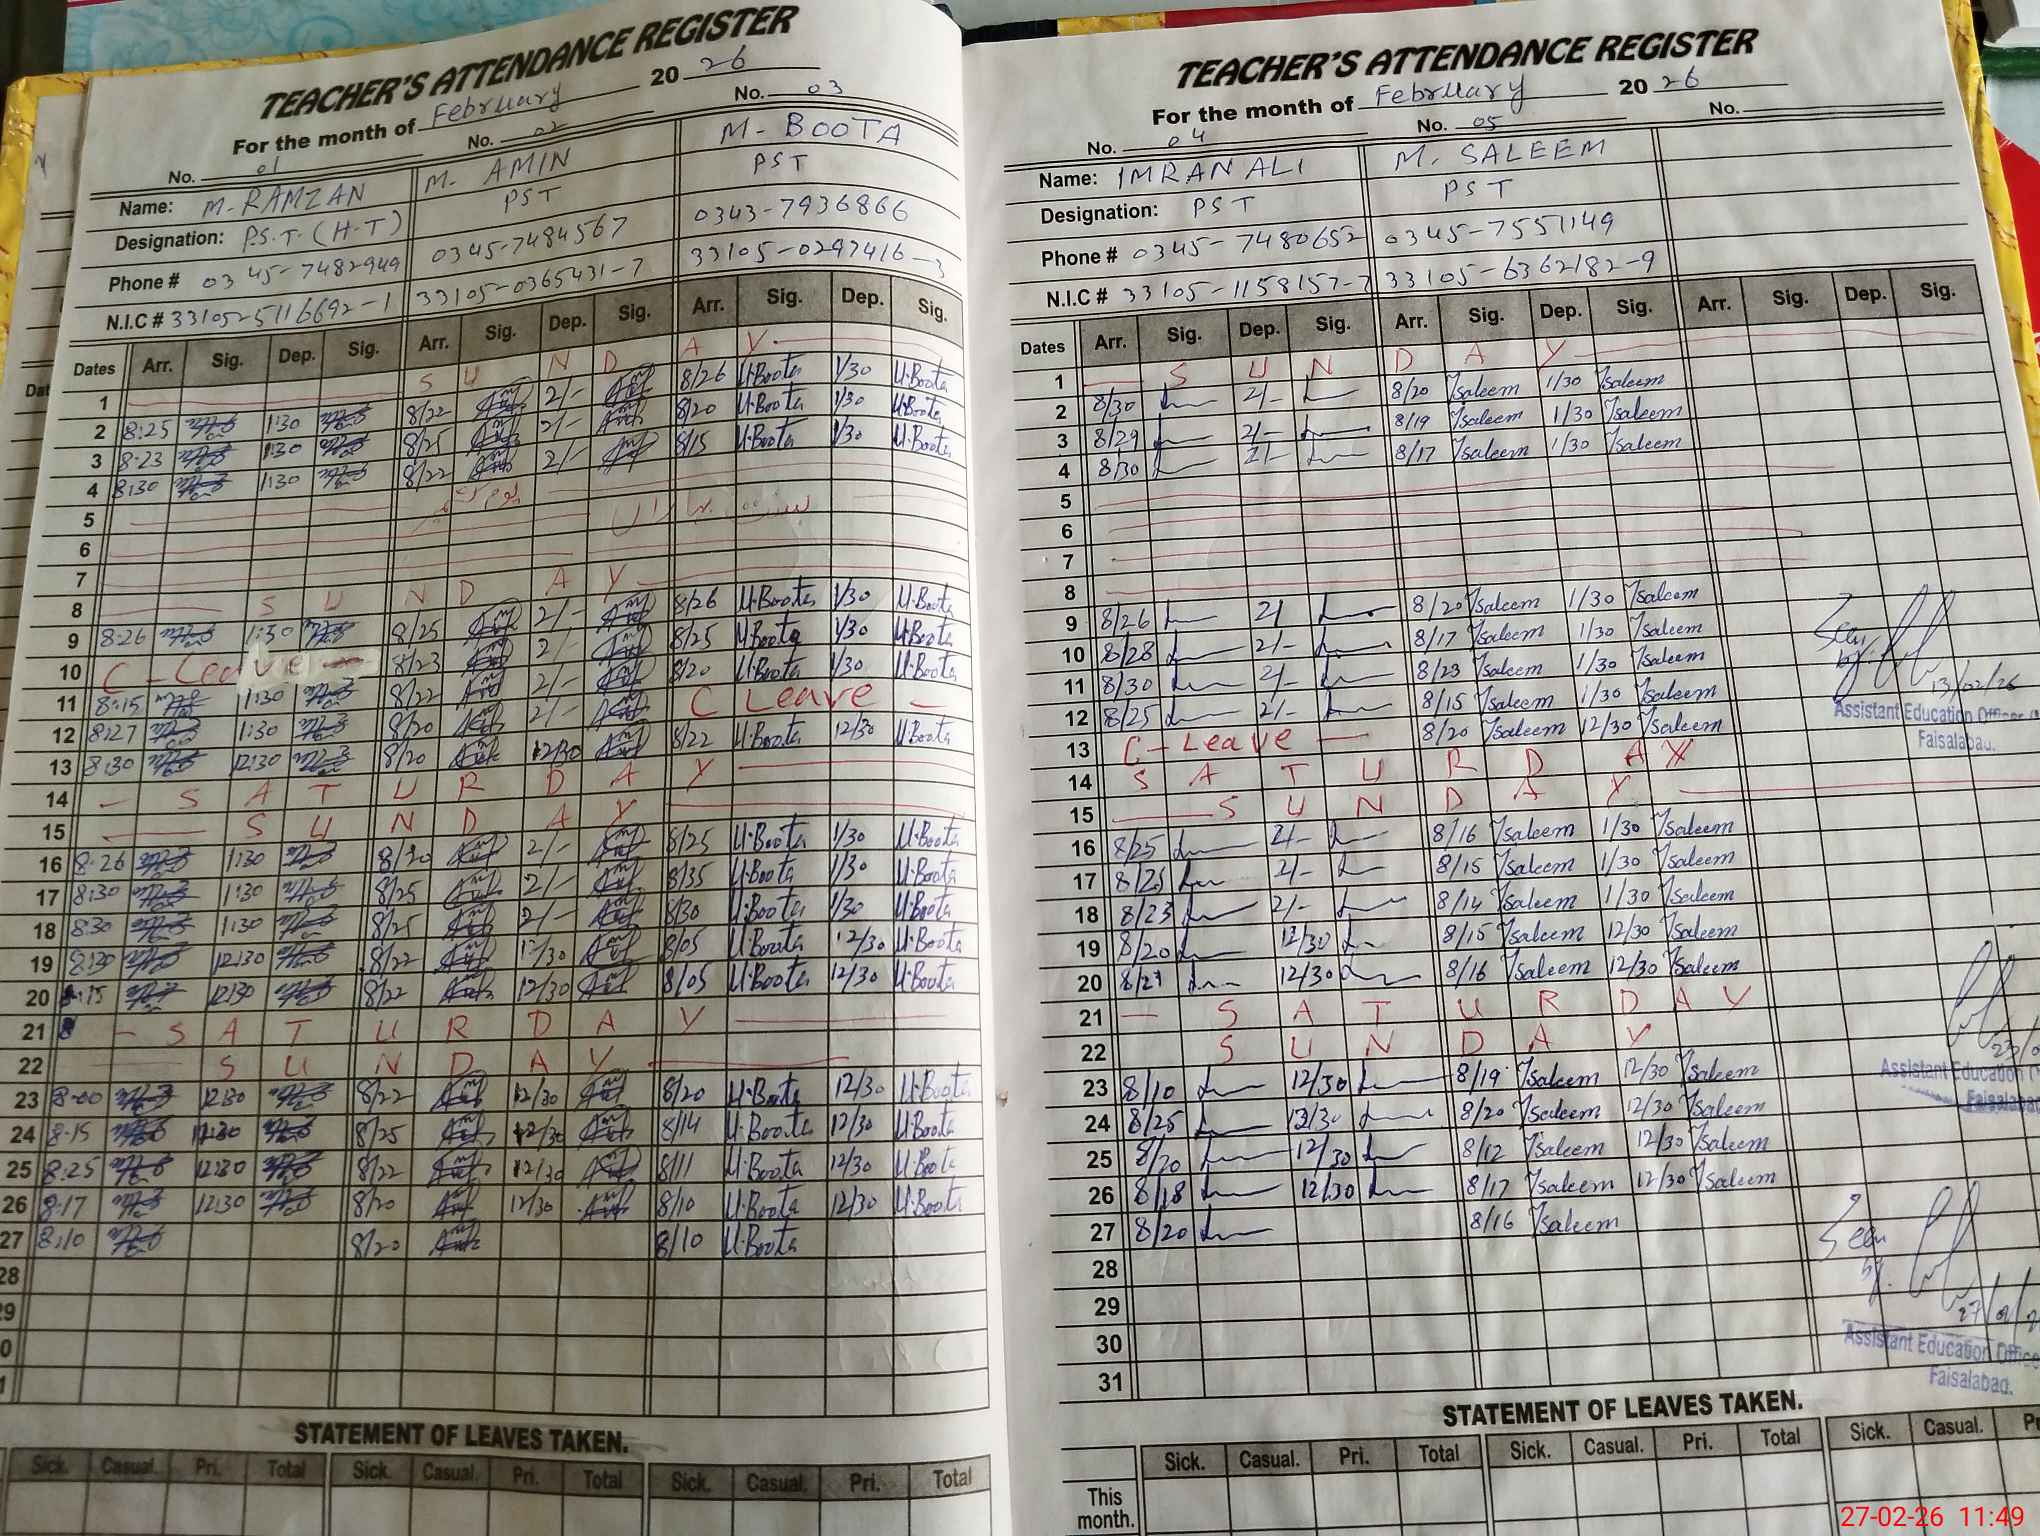 TEACHER'S ATTENDANCE REGISTER
For the month of February 20 26
No. 01 No. 02 No. 03
Name: M. RAMZAN M. AMIN M. BOOTA
Designation: P.S.T. (H.T) PST PST
Phone # 0345-7482949 0345-7484567 0343-7936866
N.I.C # 33105-5116692-1 33105-0365431-7 33105-0297416-3
Dates Arr. Sig. Dep. Sig. Arr. Sig. Dep. Sig. Arr. Sig. Dep. Sig.
1 SUNDAY
2 8:25 1:30 8/22 2/- 8/26 M.Boota 1/30 M.Boota
3 8:23 1:30 8/25 2/- 8/20 M.Boota 1/30 M.Boota
4 8:30 1:30 8/22 2/- 8/15 M.Boota 1/30 M.Boota
5
6
7
8 SUNDAY
9 8:26 1:30 8/25 2/- 8/26 M.Boota 1/30 M.Boota
10 C-Leave 8/23 2/- 8/25 M.Boota 1/30 M.Boota
11 8:15 1:30 8/22 2/- 8/20 M.Boota 1/30 M.Boota
12 8:27 1:30 8/20 2/- C Leave
13 8:30 12:30 8/20 12/30 8/22 M.Boota 12/30 M.Boota
14 SATURDAY
15 SUNDAY
16 8:26 1:30 8/20 2/- 8/25 M.Boota 1/30 M.Boota
17 8:30 1:30 8/25 2/- 8/35 M.Boota 1/30 M.Boota
18 8:30 1:30 8/25 2/- 8/30 M.Boota 1/30 M.Boota
19 12:30 8/22 8/05 M.Boota 12/30 M.Boota
20 12:30 8/22 12/30 8/05 M.Boota 12/30 M.Boota
21 SATURDAY
22 SUNDAY
23 8:00 12:30 8/22 12/30 8/20 M.Boota 12/30 M.Boota
24 8:15 12:30 8/25 12/30 8/14 M.Boota 12/30 M.Boota
25 8:25 12:30 8/22 12/30 8/11 M.Boota 12/30 M.Boota
26 8:17 12:30 8/20 12/30 8/10 M.Boota 12/30 M.Boota
27 8:10 8/20 8/10 M.Boota
28
29
STATEMENT OF LEAVES TAKEN.
Sick. Casual. Pri. Total Sick. Casual. Pri. Total Sick. Casual. Pri. Total
TEACHER'S ATTENDANCE REGISTER
For the month of February 20 26
No. 04 No. 05 No.
Name: IMRAN ALI M. SALEEM
Designation: PST PST
Phone # 0345-7480652 0345-7551149
N.I.C # 33105-1158157-7 33105-6362182-9
Dates Arr. Sig. Dep. Sig. Arr. Sig. Dep. Sig. Arr. Sig. Dep. Sig.
1 SUNDAY
2 8/30 2/- 8/20 Saleem 1/30 Saleem
3 8/29 2/- 8/19 Saleem 1/30 Saleem
4 8/30 2/- 8/17 Saleem 1/30 Saleem
5
6
7
8
9 8/26 2/ 8/20 Saleem 1/30 Saleem
10 8/28 2/- 8/17 Saleem 1/30 Saleem
11 8/30 2/- 8/23 Saleem 1/30 Saleem
12 8/25 2/- 8/15 Saleem 1/30 Saleem
13 C-Leave 8/20 Saleem 12/30 Saleem
14 SATURDAY
15 SUNDAY
16 8/25 2/- 8/16 Saleem 1/30 Saleem
17 8/25 2/- 8/15 Saleem 1/30 Saleem
18 8/23 2/- 8/14 Saleem 1/30 Saleem
19 8/20 12/30 8/15 Saleem 12/30 Saleem
20 8/21 12/30 8/16 Saleem 12/30 Saleem
21 SATURDAY
22 SUNDAY
23 8/10 12/30 8/19 Saleem 12/30 Saleem
24 8/25 12/30 8/20 Saleem 12/30 Saleem
25 8/20 12/30 8/12 Saleem 12/30 Saleem
26 8/18 12/30 8/17 Saleem 12/30 Saleem
27 8/20 8/16 Saleem
28
29
30
31
Seen
by
13/02/26
Assistant Education Officer
Faisalabad.
Assistant Education
Seen
by.
Assistant Education Office
Faisalabad.
STATEMENT OF LEAVES TAKEN.
Sick. Casual. Pri. Total Sick. Casual. Pri. Total Sick. Casual.
This month.
27-02-26 11:49